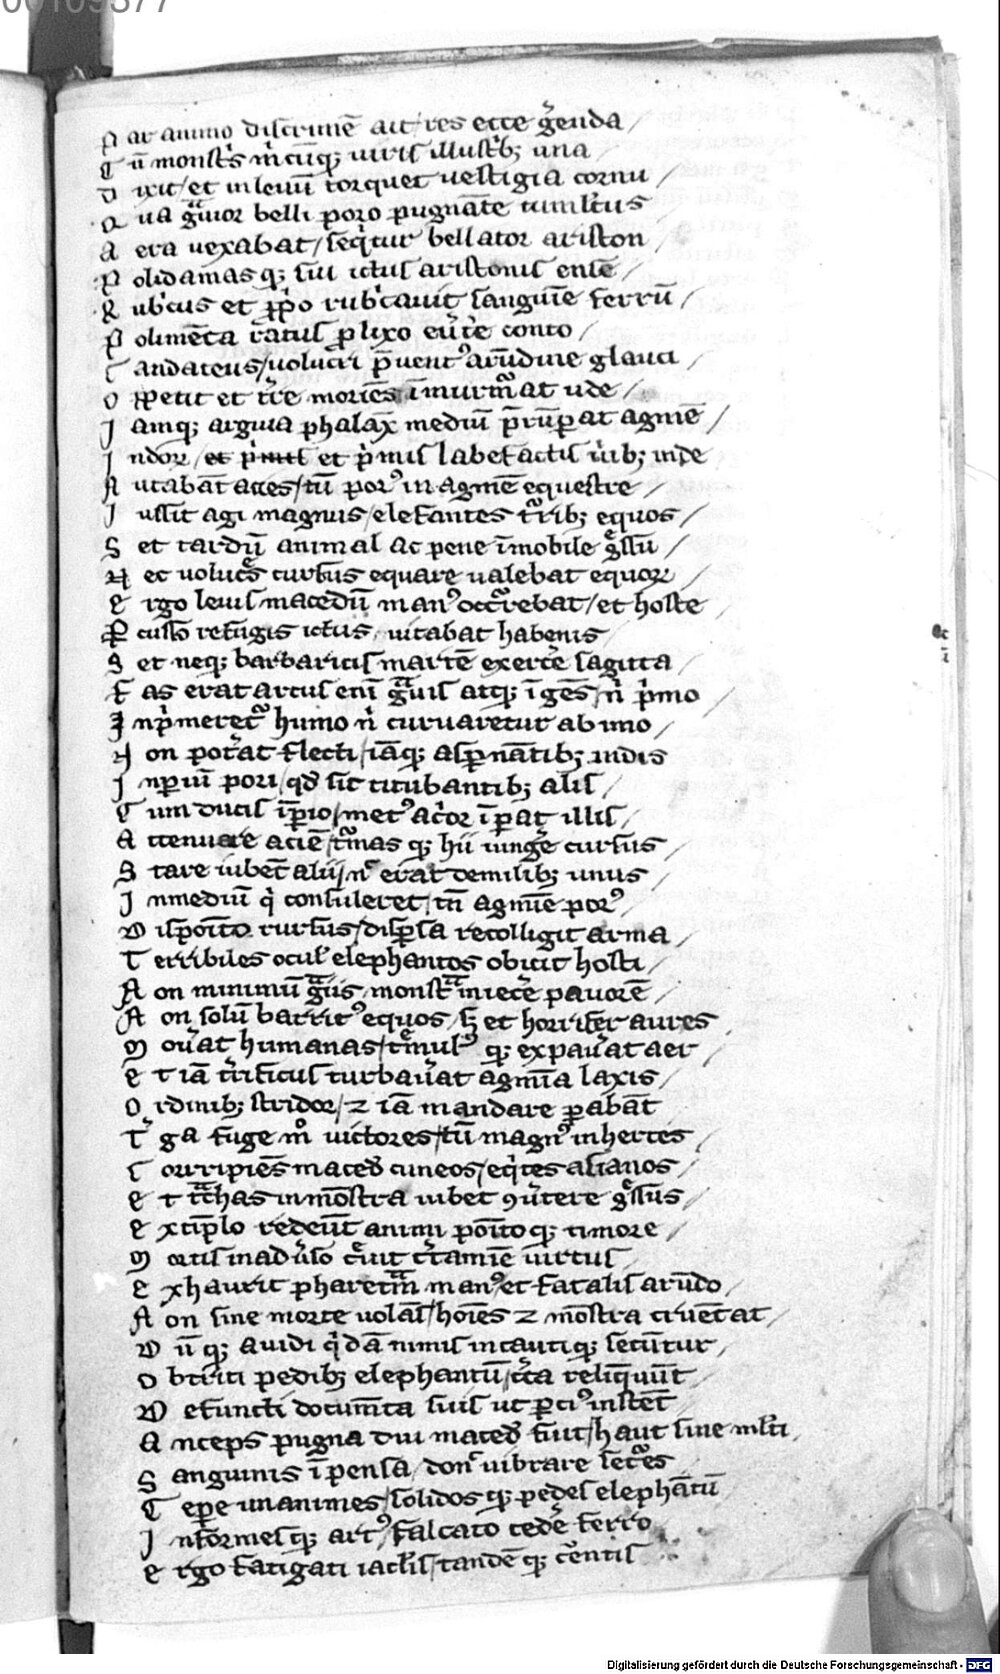 00109377
P ar animo discrimē ait/ res ecce g͛enda /
C ū monstͥs mͥcūqꝫ uiris illustͥbꝫ una
D ixit/ et in leuū torquet uestigia cornu /
Q ua gͣuior belli poro pugnāte tumĺtus
A era uexabat/ seqͥtur bellator ariston
P olidamasqꝫ sui ictus aristonis ense /
R ubͥcus et ꝓpͥo rubͥcauit sanguīe ferrū /
P olimēta ratus prolixo eut͛e conto /
C andaceus/ uolucͥ p̄uentꝰ arūdine glauci /
O ppetit et t͛re moriēs īmurmͣat ude /
I amqꝫ argiua phalax mediū p̄rūpat agmē /
I ndoꝝ / et pͥmis labefactis uiribꝫ inde
N utabāt acies/ tū porꝰ in agmē equestre /
I ussit agi magnus/ elefantes t͛ribꝫ equos /
S et tardū animal ac pene īmobile gͤssū /
N ec uolucͤs cursus equare ualebat equoꝝ /
E rgo leuis macedū manꝰ occͥrebat/ et hoste
P̄ cusso refugis ictus, uitabat habenis
S et neqꝫ barbaricis martē exerce͛ sagitta /
F as erat arcus enī gͣuis atqꝫ īgēs/ nͥ pͥmo
I npͥmeret͛ humo nͥ curuaretur ab imo /
N on potͥat flecti/ iāqꝫ aspnātibꝫ indis
I nperiū pori/ qd̕ sit titubantibꝫ alis /
C um ducis īperio/ metꝰ acͥor īperat illis /
A ttenuare aciē/ tͥmas qꝫ hii iunge͛ cursus /
S tare iubēt alii/ nͨ erat demilibꝫ unus
I nmediū qͥ consuleret/ tn̄ agmīe porꝰ
D isposito rursus/ disp̄sa recolligit arma /
T erribiles oculͥ elephantos obicit hosti /
N on minimū gͣiis/ monstͣ iniece͛ pauorē
N on solū barritꝰ equos/ sꝫ et horrifer aures
M ouͥat humanas/ tͤmulꝰ qꝫ expauͥat aer
E t iā t͛rificus turbau͛at agmīa laxis /
O rdinibꝫ stridor/ ⁊ iā mandare parabāt
T͛ ga fuge mͦ uictores/ tū magnꝰ inhertes /
C orripiēs maced̕ cuneos/ eqͥtes asianos /
E t tͣchas in mōstra iubet ꝯu͛tere gͤssus /
E xtīplo redeūt animi poītoqꝫ timore /
M ortis in adu͛so cͤuit c͛tamīe uirtus
E xhaurit pharetrͣm manꝰ et fatalis arūdo /
N on sine morte uolās/ hoīes ⁊ mōstra cruētat /
D ūqꝫ auidi qͥdā nimis incautiqꝫ secūtur /
O btriti pedibꝫ elephantū/ cͣta reliqūūt /
D efuncti documēta suis ut parciꝰ instēt
A nceps pugna diu maced̕ fuit/ haut sine mĺti /
S anguinis īpensa / donͨ uibrare secͤes
C epe͛ unanimes/ solidosqꝫ pedes elephātū
I nformesqꝫ artꝰ/ falcato cede͛ ferro
E rgo fatigati iaclͥis/ tandēqꝫ cͤentis
Digitalisierung gefördert durch die Deutsche Forschungsgemeinschaft - DFG